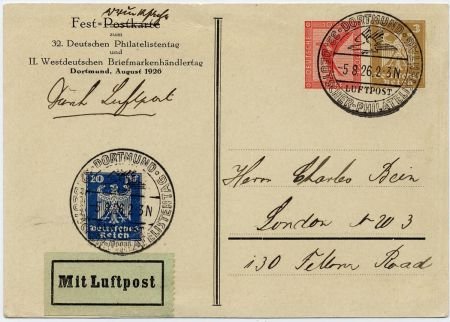 Drucksache
Fest-Postkarte
zum
32. Deutschen Philatelistentag
und
II. Westdeutschen Briefmarkenhändlertag
Dortmund, August 1926
Durch Luftpost
DORTMUND
5 8.26.2-3N
LUFTPOST
PHILATELISTENTAG
3
DORTMUND
5.8.26.2-3N
PHILATELISTENTAG
20
Deutsches
Reich
Mit Luftpost
Herrn Charles Bein
London N W 3
130 Fellows Road